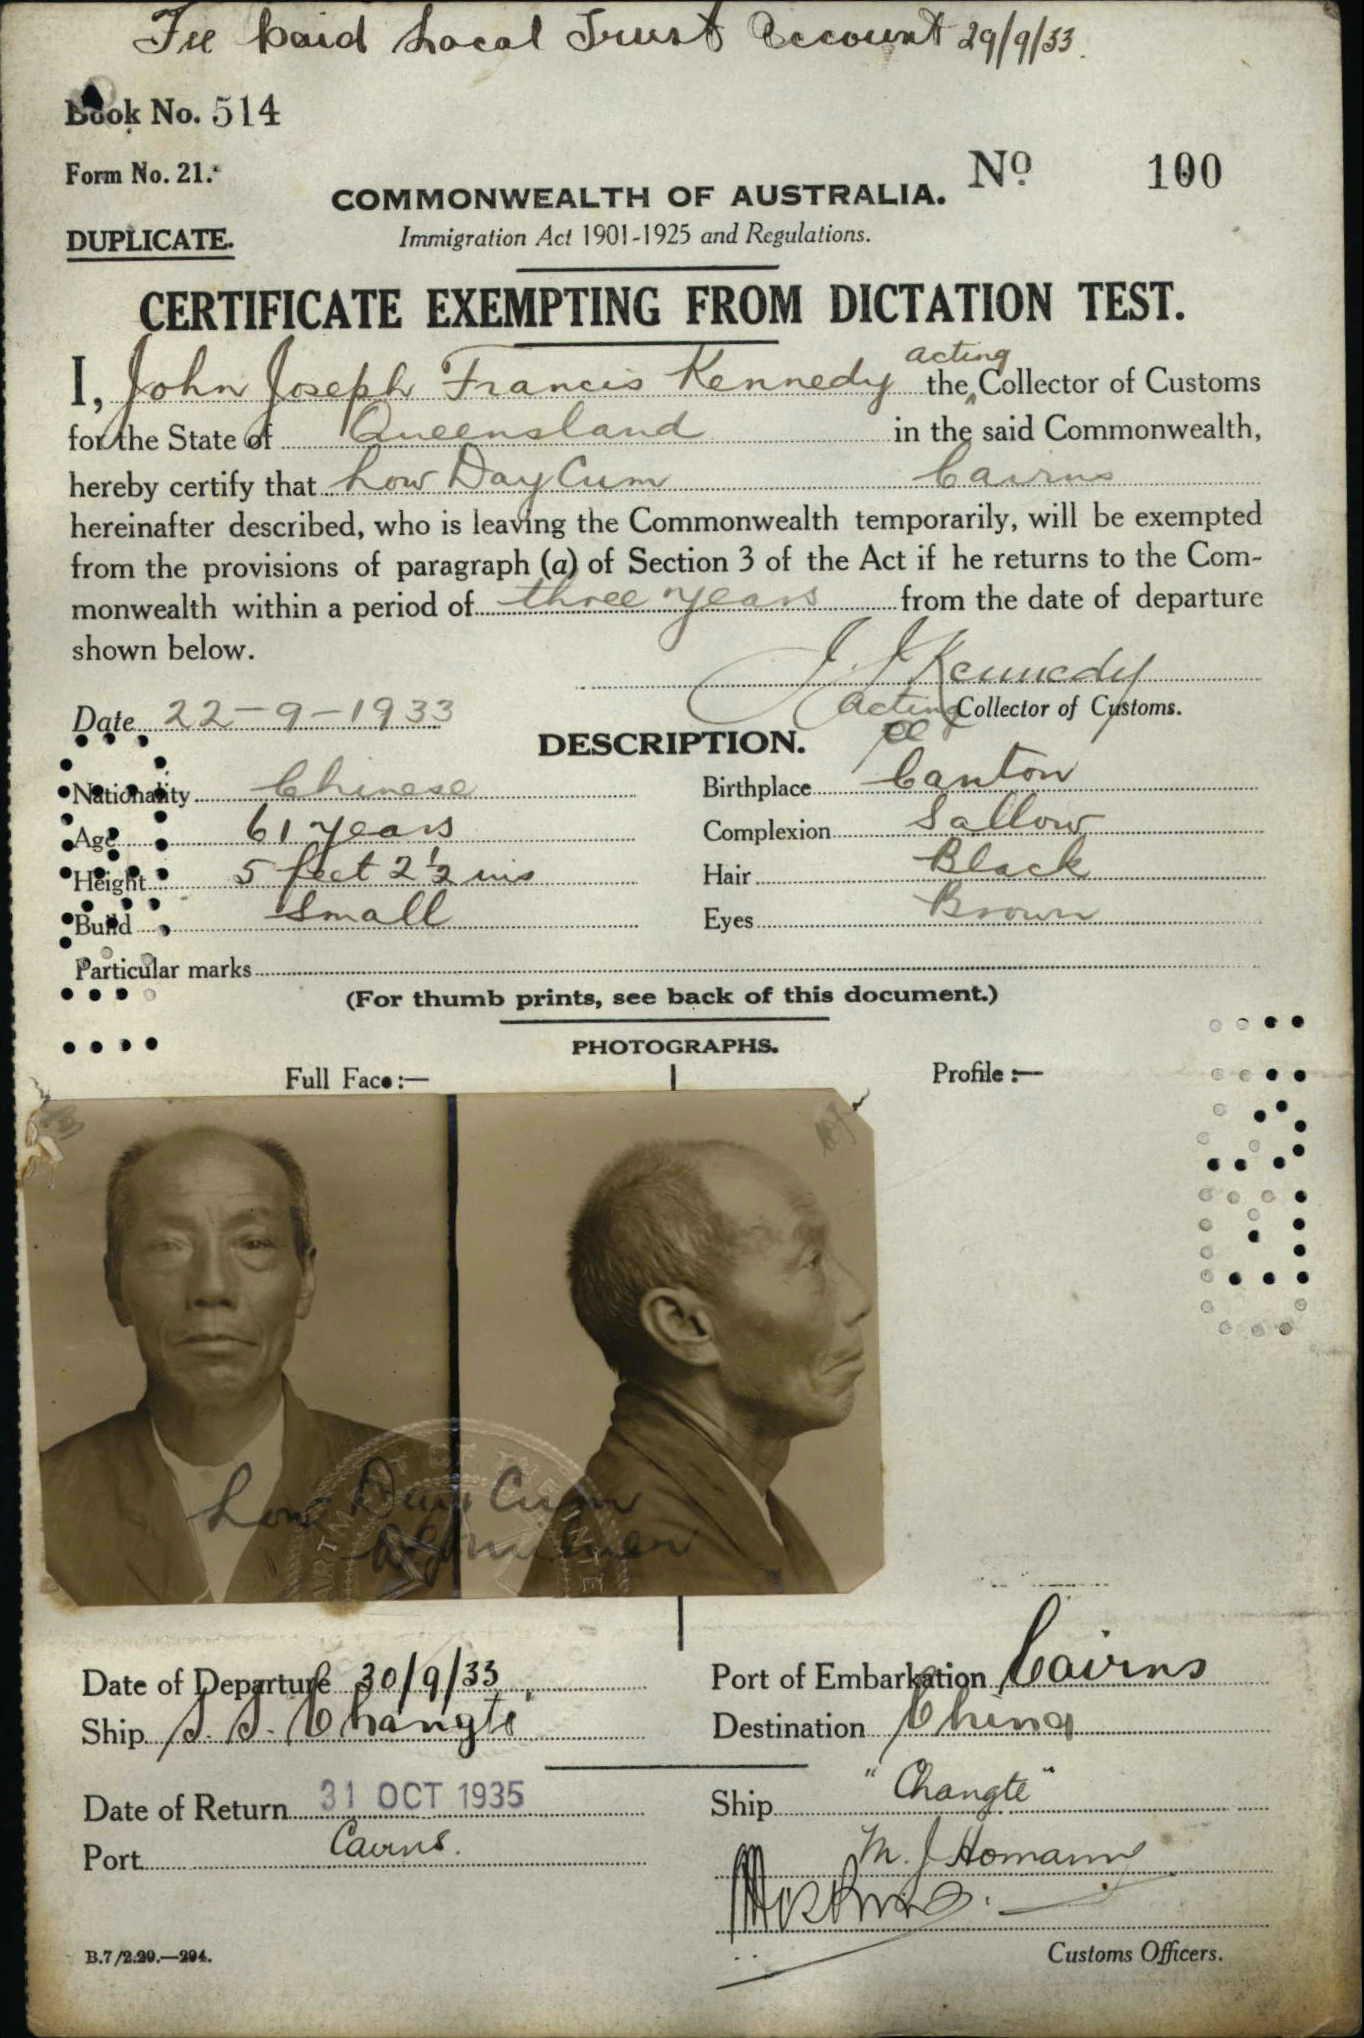 Fee paid Local Trust Account 29/9/33.
Book No. 514
Form No. 21.
No. 100
COMMONWEALTH OF AUSTRALIA.
DUPLICATE.
Immigration Act 1901-1925 and Regulations.
CERTIFICATE EXEMPTING FROM DICTATION TEST.
I, John Joseph Francis Kennedy the acting Collector of Customs
for the State of Queensland in the said Commonwealth,
hereby certify that Low Day Cum Cairns
hereinafter described, who is leaving the Commonwealth temporarily, will be exempted
from the provisions of paragraph (a) of Section 3 of the Act if he returns to the Com-
monwealth within a period of three years from the date of departure
shown below.
J. J. Kennedy
Acting Collector of Customs.
Date 22-9-1933
DESCRIPTION.
Nationality Chinese Birthplace Canton
Age 61 years Complexion Sallow
Height 5 feet 2 1/2 ins Hair Black
Build Small Eyes Brown
Particular marks
(For thumb prints, see back of this document.)
PHOTOGRAPHS.
Full Face:— Profile:—
Low Day Cum
Date of Departure 30/9/33 Port of Embarkation Cairns
Ship S.S. Changte Destination China
Date of Return 31 OCT 1935 Ship "Changte"
Port Cairns.
M. J. Homann
B.7/2.29.—294. Customs Officers.